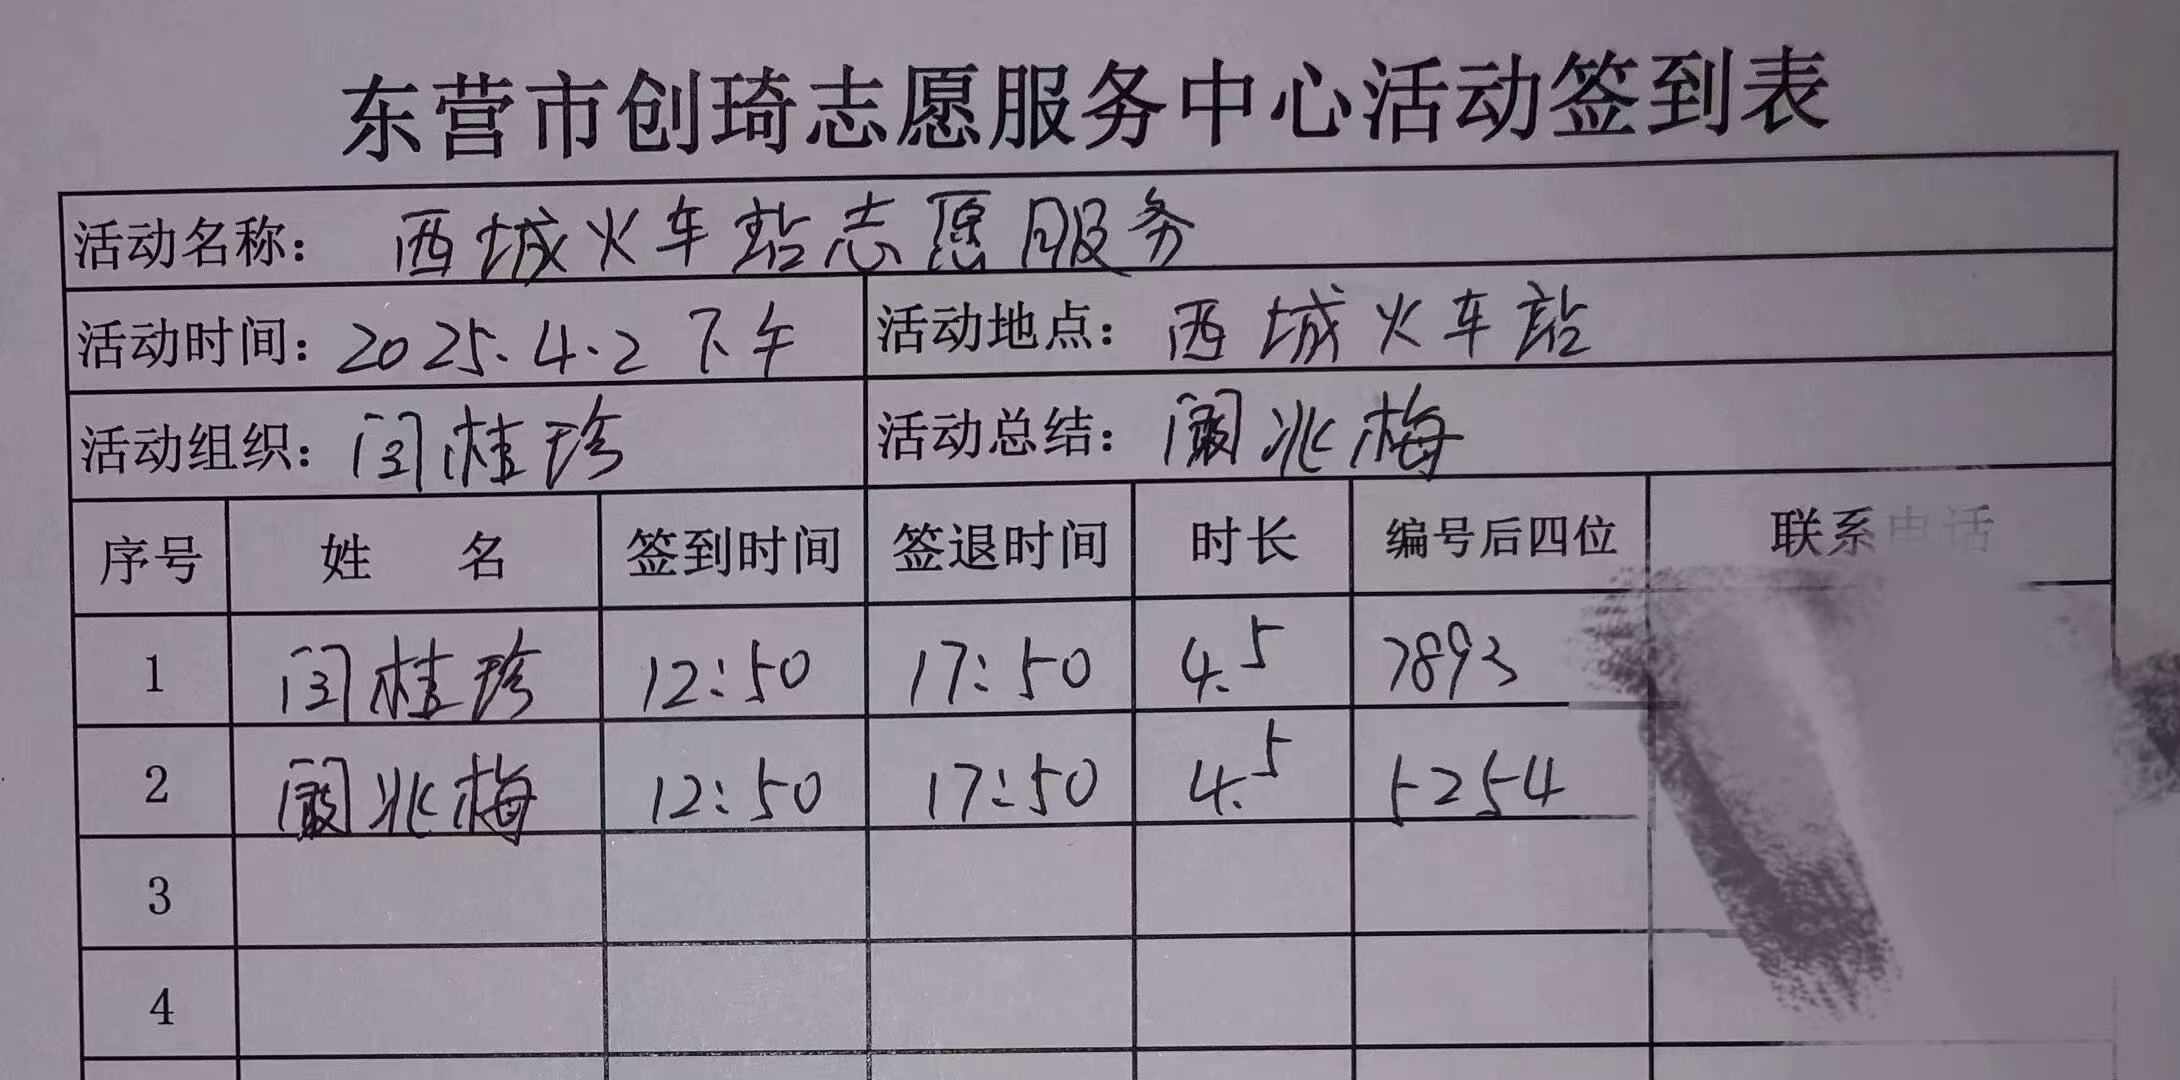 东营市创琦志愿服务中心活动签到表
活动名称： 西城火车站志愿服务
活动时间：2025.4.2 下午 活动地点： 西城火车站
活动组织： 闫桂珍 活动总结： 阚兆梅
序号 姓 名 签到时间 签退时间 时长 编号后四位 联系电话
1 闫桂珍 12:50 17:50 4.5 7893
2 阚兆梅 12:50 17:50 4.5 5254
3
4